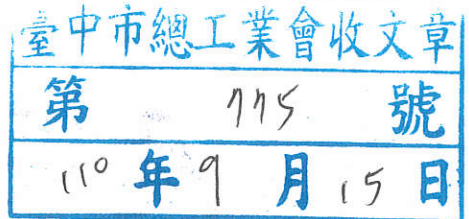 臺中市總工業會收文章
第 775 號
110 年 9 月 15 日